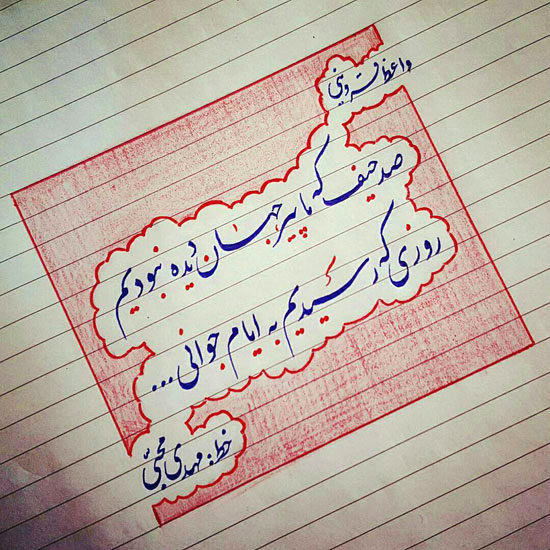 واعظ قزوینی
صد حیف که ما پیر جهان دیده نبودیم
روزی که رسیدیم به ایام جوانی...
خط: مهدی محبی